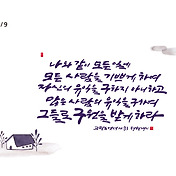 /9
나와 같이 모든 일에
모든 사람을 기쁘게 하여
자신의 유익을 구하지 아니하고
많은 사람의 유익을 구하여
그들로 구원을 받게 하라
고린도전서 10:33